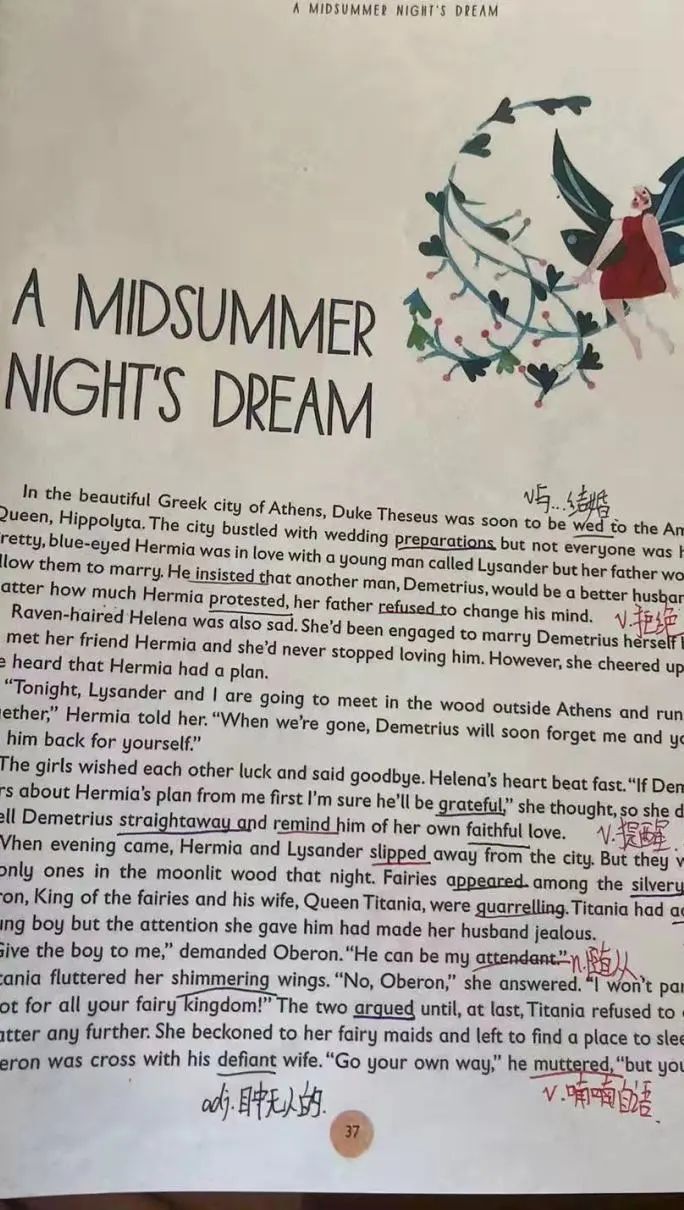 A MIDSUMMER NIGHT'S DREAM
A MIDSUMMER
NIGHT'S DREAM
v与...结婚
In the beautiful Greek city of Athens, Duke Theseus was soon to be wed to the
Queen, Hippolyta. The city bustled with wedding preparations but not everyone was
blue-eyed Hermia was in love with a young man called Lysander but her father
them to marry. He insisted that another man, Demetrius, would be a better
how much Hermia protested, her father refused to change his mind. v.拒绝
Raven-haired Helena was also sad. She'd been engaged to marry Demetrius herself
met her friend Hermia and she'd never stopped loving him. However, she cheered up
heard that Hermia had a plan.
“Tonight, Lysander and I are going to meet in the wood outside Athens and run
Hermia told her. “When we're gone, Demetrius will soon forget me and
him back for yourself.”
The girls wished each other luck and said goodbye. Helena's heart beat fast. “If
about Hermia's plan from me first I'm sure he'll be grateful,” she thought, so she
Demetrius straightaway and remind him of her own faithful love. v.提醒.
When evening came, Hermia and Lysander slipped away from the city. But they
only ones in the moonlit wood that night. Fairies appeared among the silvery
King of the fairies and his wife, Queen Titania, were quarrelling. Titania had
boy but the attention she gave him had made her husband jealous.
Give the boy to me,” demanded Oberon. “He can be my attendant.” n.随从
fluttered her shimmering wings. “No, Oberon,” she answered. “I won't
for all your fairy kingdom!” The two argued until, at last, Titania refused to
any further. She beckoned to her fairy maids and left to find a place to
was cross with his defiant wife. “Go your own way,” he muttered, “but
adj.目中无人的. v.喃喃自语.
37